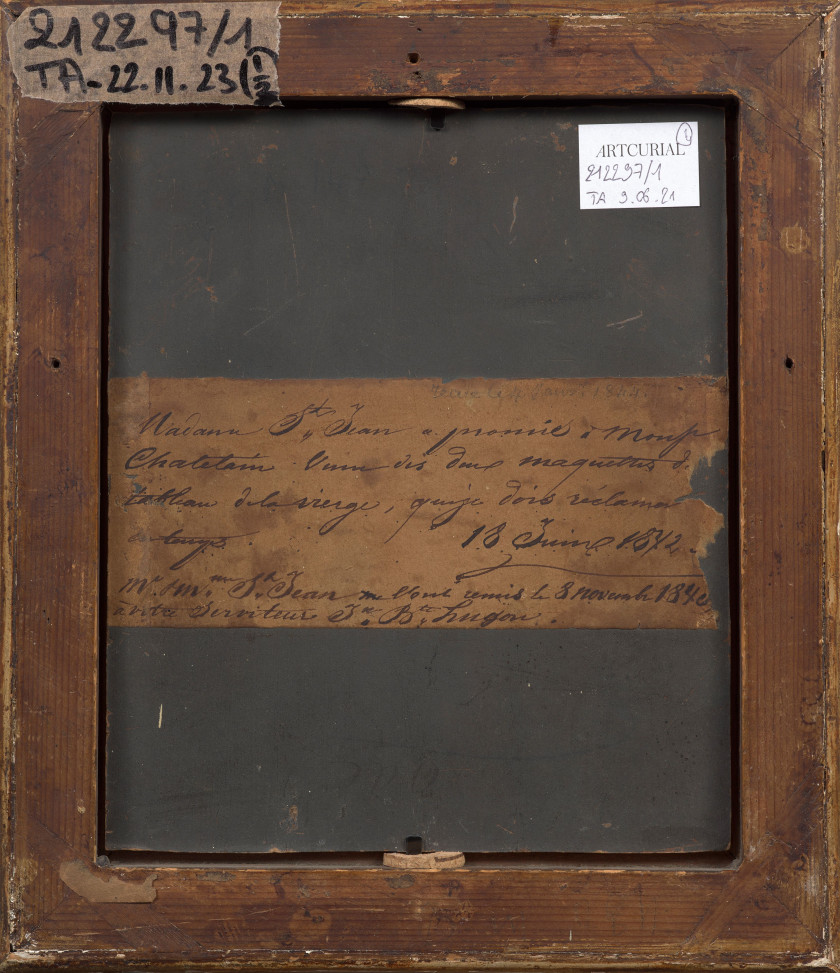 212297/1
TA-22.11.23 (1/2
ARTCURIAL 1
212297/1
TA 9.06.21
1844.
Madame St Jean a promis à Monsr
Chatelain l'une des deux maquettes d
tableau de la vierge, que je dois réclamer
18 Juin 1842.
Mr & Mme St Jean me l'ont remis le 8 novembre 184
à votre Serviteur Jn Bte Lugon.